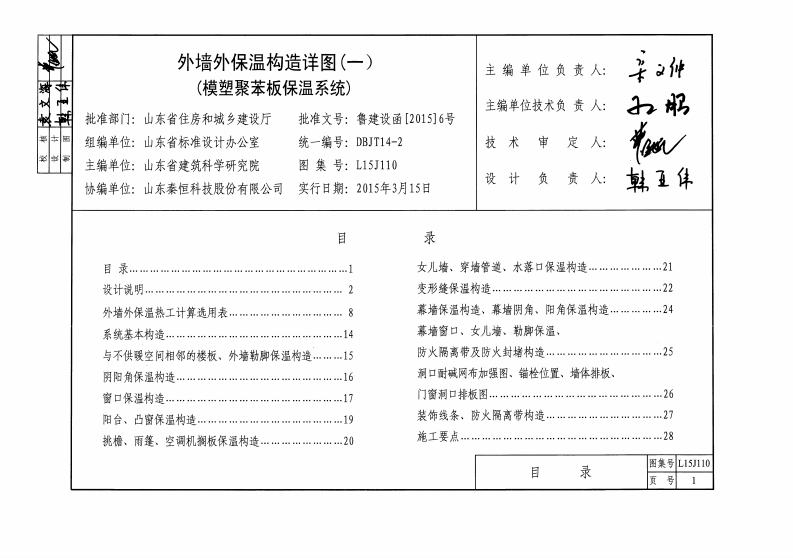 外墙外保温构造详图(一)
(模塑聚苯板保温系统)
批准部门: 山东省住房和城乡建设厅 批准文号: 鲁建设函[2015]6号
组编单位: 山东省标准设计办公室 统一编号: DBJT14-2
主编单位: 山东省建筑科学研究院 图 集 号: L15J110
协编单位: 山东秦恒科技股份有限公司 实行日期: 2015年3月15日
主 编 单 位 负 责 人:
主编单位技术负 责 人:
技 术 审 定 人:
设 计 负 责 人: 韩亚伟
校 核 袁文辉
设 计
制 图 韩亚伟
目 录
目 录……………………………………………1
设计说明……………………………………… 2
外墙外保温热工计算选用表…………………… 8
系统基本构造……………………………………14
与不供暖空间相邻的楼板、外墙勒脚保温构造……15
阴阳角保温构造…………………………………16
窗口保温构造……………………………………17
阳台、凸窗保温构造……………………………19
挑檐、雨篷、空调机搁板保温构造………………20
女儿墙、穿墙管道、水落口保温构造……………21
变形缝保温构造…………………………………22
幕墙保温构造、幕墙阴角、阳角保温构造…………24
幕墙窗口、女儿墙、勒脚保温、
防火隔离带及防火封堵构造……………………25
洞口耐碱网布加强图、锚栓位置、墙体排板、
门窗洞口排板图…………………………………26
装饰线条、防火隔离带构造……………………27
施工要点…………………………………………28
目 录
图集号 L15J110
页 号 1